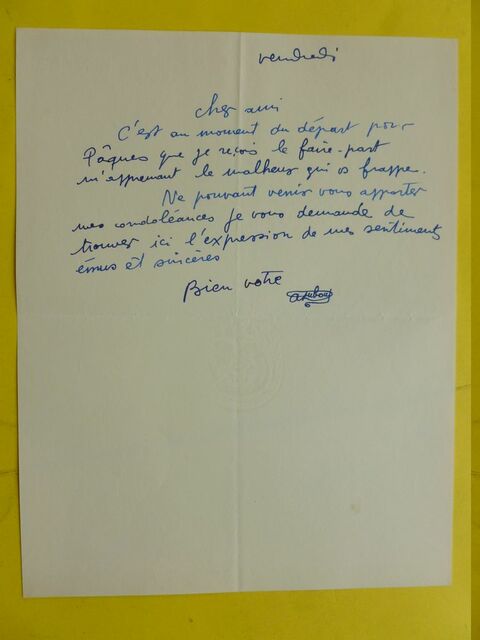 vendredi
cher ami
C'est au moment du départ pour
Pâques que je reçois le faire-part
m'apprenant le malheur qui vs frappe.
Ne pouvant venir vous apporter
mes condoléances je vous demande de
trouver ici l'expression de mes sentiments
émus et sincères
Bien votre